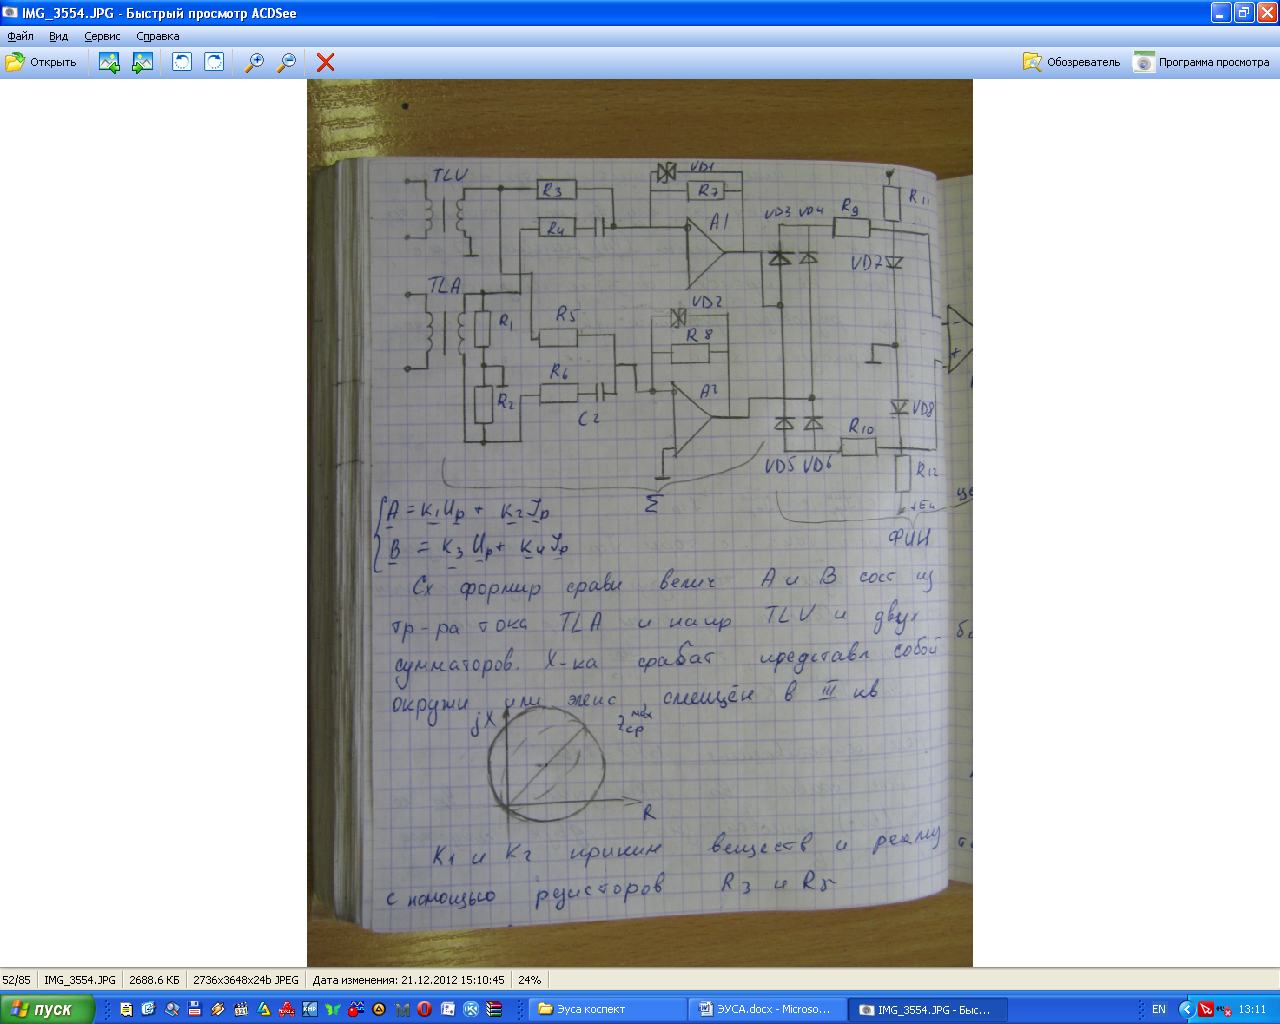 IMG_3554.JPG - Быстрый просмотр ACDSee
Файл Вид Сервис Справка
Открыть Обозреватель Программа просмотра
TLV R3 VD1 R7 R11
R4 A1 VD3 VD4 R9
VD7
TLA R1 R5 VD2 R8
-
+
R6 R2 C2 A2 VD8
R10
VD5 VD6 R12
Σ
A = K1Uр + K2Iр
B = K3Uр + K4Iр
ФИН
Сх формир сравн велич А и В сост из
тр-ра тока TLA и напр TLV и двух
сумматоров. Х-ка срабат представл собой
окружн или элипс, смещён в III кв
jX Zср max
R
K1 и K2 приним веществ и реализ
с помощью резисторов R3 и R5
52/85 IMG_3554.JPG 2688.6 КБ 2736x3648x24b JPEG Дата изменения: 21.12.2012 15:10:45 24%
пуск Эуса коспект ЭУСА.docx - Microso... IMG_3554.JPG - Быс... EN 13:11